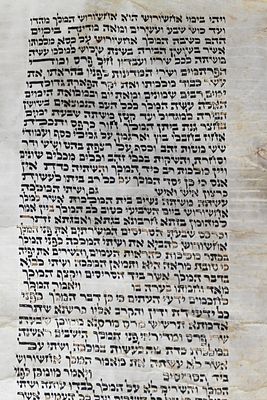 ויהי בימי אחשורוש הוא אחשורוש המלך מהדו
ועד כוש שבע ועשרים ומאה מדינה בימים
ההם כשבת המלך אחשורוש על כסא מלכותו
אשר בשושן הבירה בשנת שלוש למלכו עשה
משתה לכל שריו ועבדיו חיל פרס ומדי
הפרתמים ושרי המדינות לפניו בהראתו את
עשר כבוד מלכותו ואת יקר תפארת גדולתו
ימים רבים שמונים ומאת יום ובמלואת הימים
האלה עשה המלך לכל העם הנמצאים בשושן
הבירה למגדול ועד קטן משתה שבעת ימים
בחצר גנת ביתן המלך חור כרפס ותכלת אחוז
בחבלי בוץ וארגמן על גלילי כסף ועמודי
שש מטות זהב וכסף על רצפת בהט ושש ודר
וסחרת והשקות בכלי זהב וכלים מכלים שונים
ויין מלכות רב כיד המלך והשתיה כדת אין
אנס כי כן יסד המלך על כל רב ביתו לעשות
כרצון איש ואיש גם ושתי המלכה
עשתה משתה נשים בית המלכות אשר למלך
אחשורוש ביום השביעי כטוב לב המלך ביין אמר
למהומן בזתא חרבונא בגתא ואבגתא זתר
וכרכס שבעת הסריסים המשרתים את פני המלך
אחשורוש להביא את ושתי המלכה לפני המלך
בכתר מלכות להראות העמים והשרים את יפיה
כי טובת מראה היא ותמאן המלכה ושתי לבוא
בדבר המלך אשר ביד הסריסים ויקצף המלך
מאד וחמתו בערה בו ויאמר המלך
לחכמים ידעי העתים כי כן דבר המלך לפני
כל ידעי דת ודין והקרב אליו כרשנא שתר
אדמתא תרשיש מרס מרסנא ממוכן שבעת
שרי פרס ומדי ראי פני המלך הישבים ראשנה
במלכות כדת מה לעשות במלכה ושתי על
אשר לא עשתה את מאמר המלך אחשורוש
ביד הסריסים ויאמר מומכן לפני
המלך והשרים לא על המלך לבדו עותה ושתי